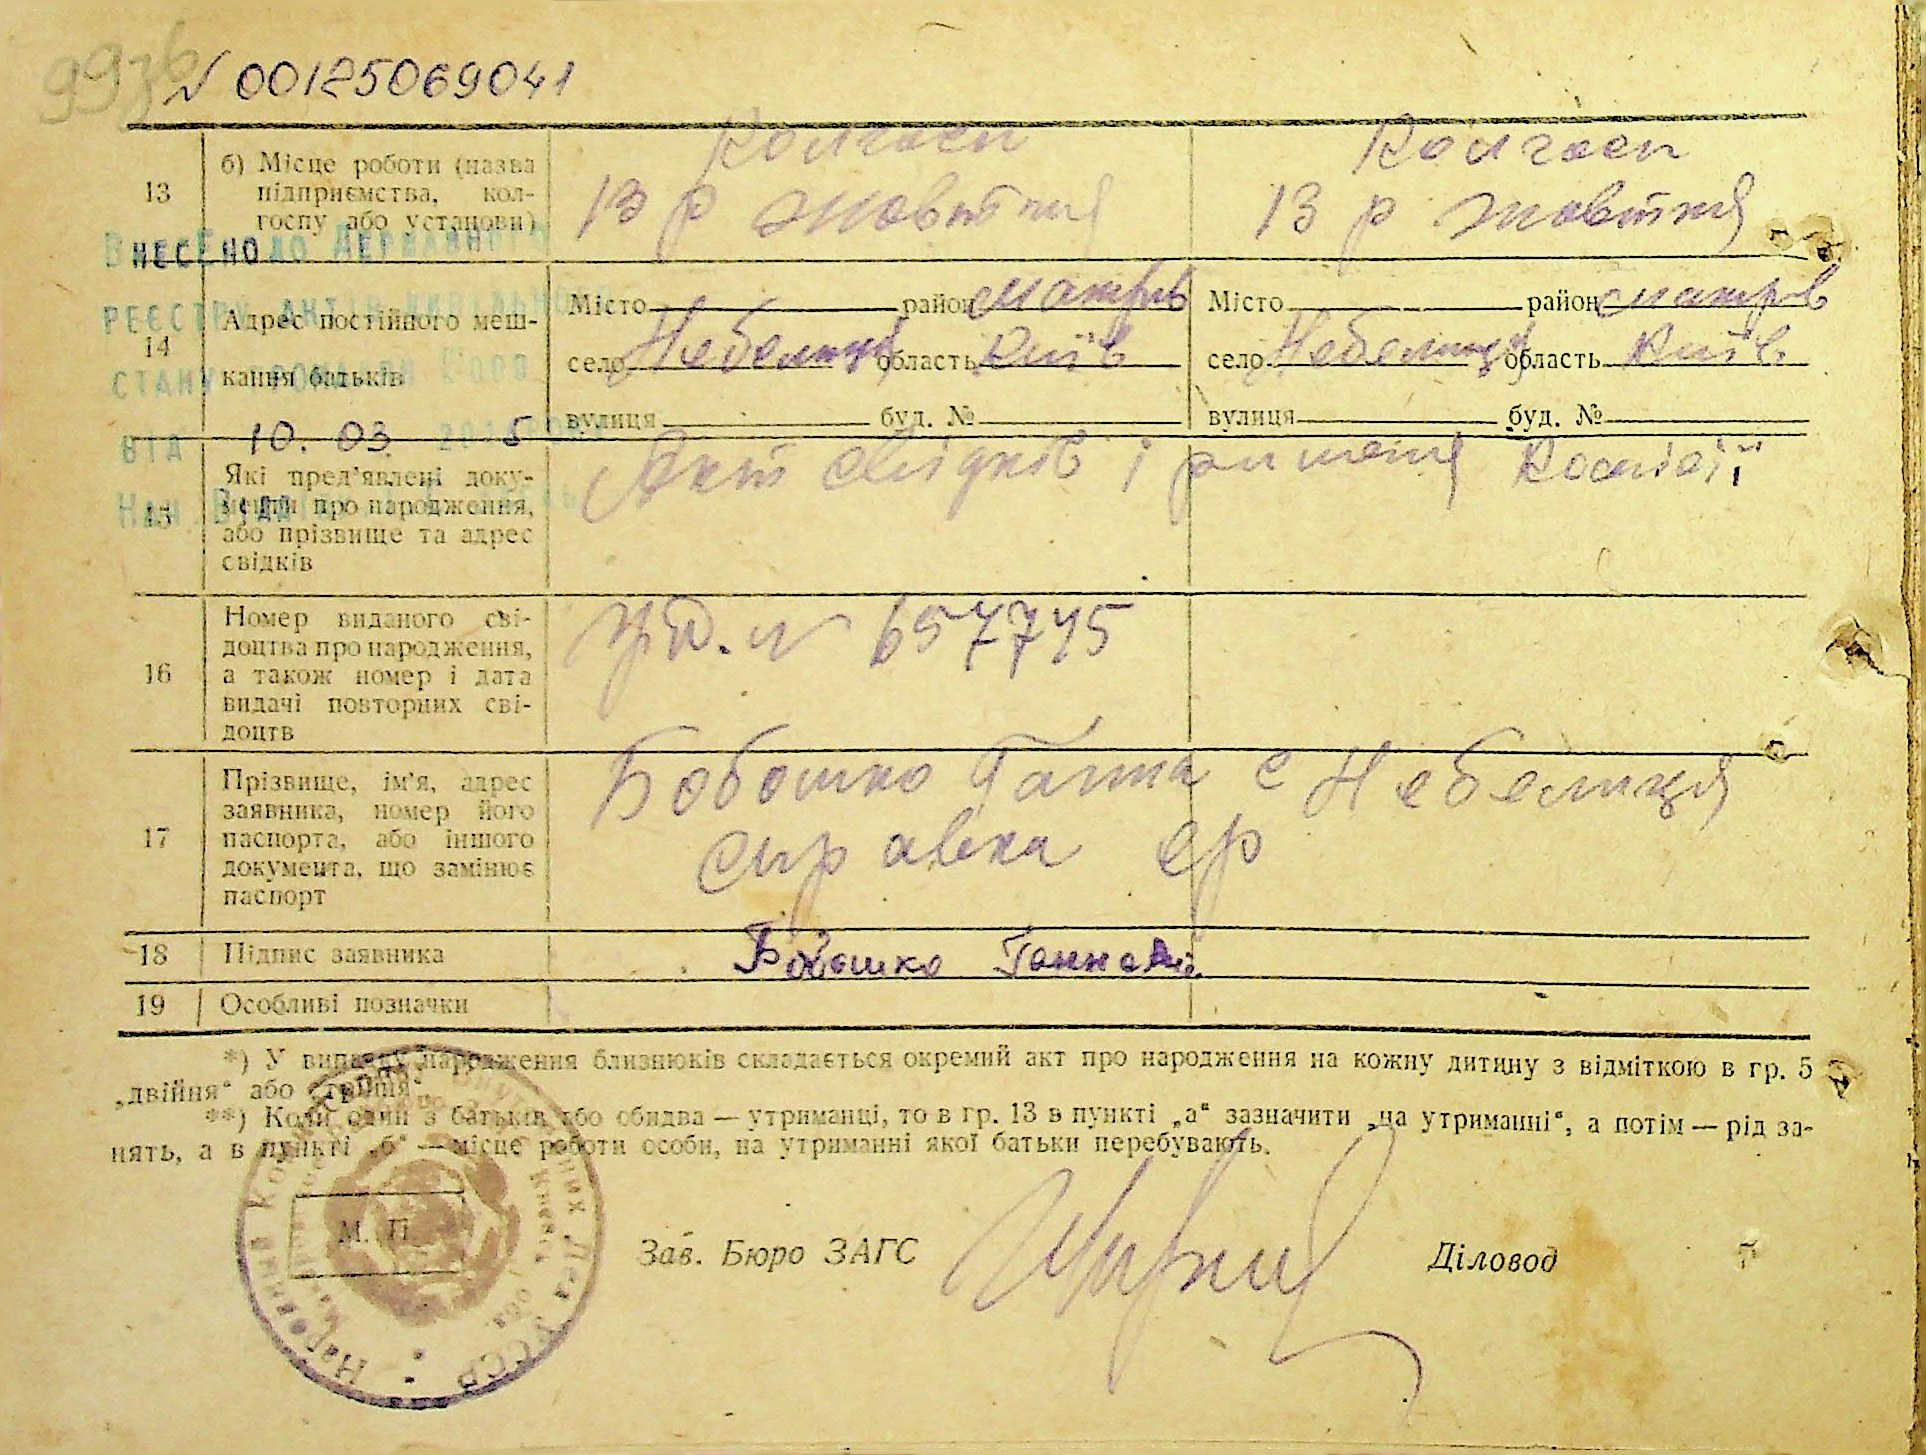 √ 00125069041
13
б) Місце роботи (назва
підприємства, кол-
госпу або установи)
Колгосп
13 р Жовтня
Колгосп
13 р Жовтня
Внесено до Державного
реєстру актів цивільного
стану громадян
від 10. 03. 2015
14
Адрес постійного меш-
кання батьків
Місто район Макарів
село Небелиця область Київ
вулиця буд. №
Місто район Макарів
село Небелиця область Київ.
вулиця буд. №
15
Які пред’явлені доку-
менти про народження,
або прізвище та адрес
свідків
Акт свідків і рішення комісії
16
Номер виданого сві-
доцтва про народження,
а також номер і дата
видачі повторних сві-
доцтв
№ 657745
17
Прізвище, ім’я, адрес
заявника, номер його
паспорта, або іншого
документа, що замінює
паспорт
Бобошко Ганна с Небелиця
справка ср
18
Підпис заявника
Бобошко Ганна
19
Особливі позначки
*) У випадку народження близнюків складається окремий акт про народження на кожну дитину з відміткою в гр. 5
„двійня“ або „трійня“.
**) Коли один з батьків або обидва — утриманці, то в гр. 13 в пункті „а“ зазначити „на утриманні“, а потім — рід за-
нять, а в пункті „б“ — місце роботи особи, на утриманні якої батьки перебувають.
М. П.
Зав. Бюро ЗАГС
Діловод